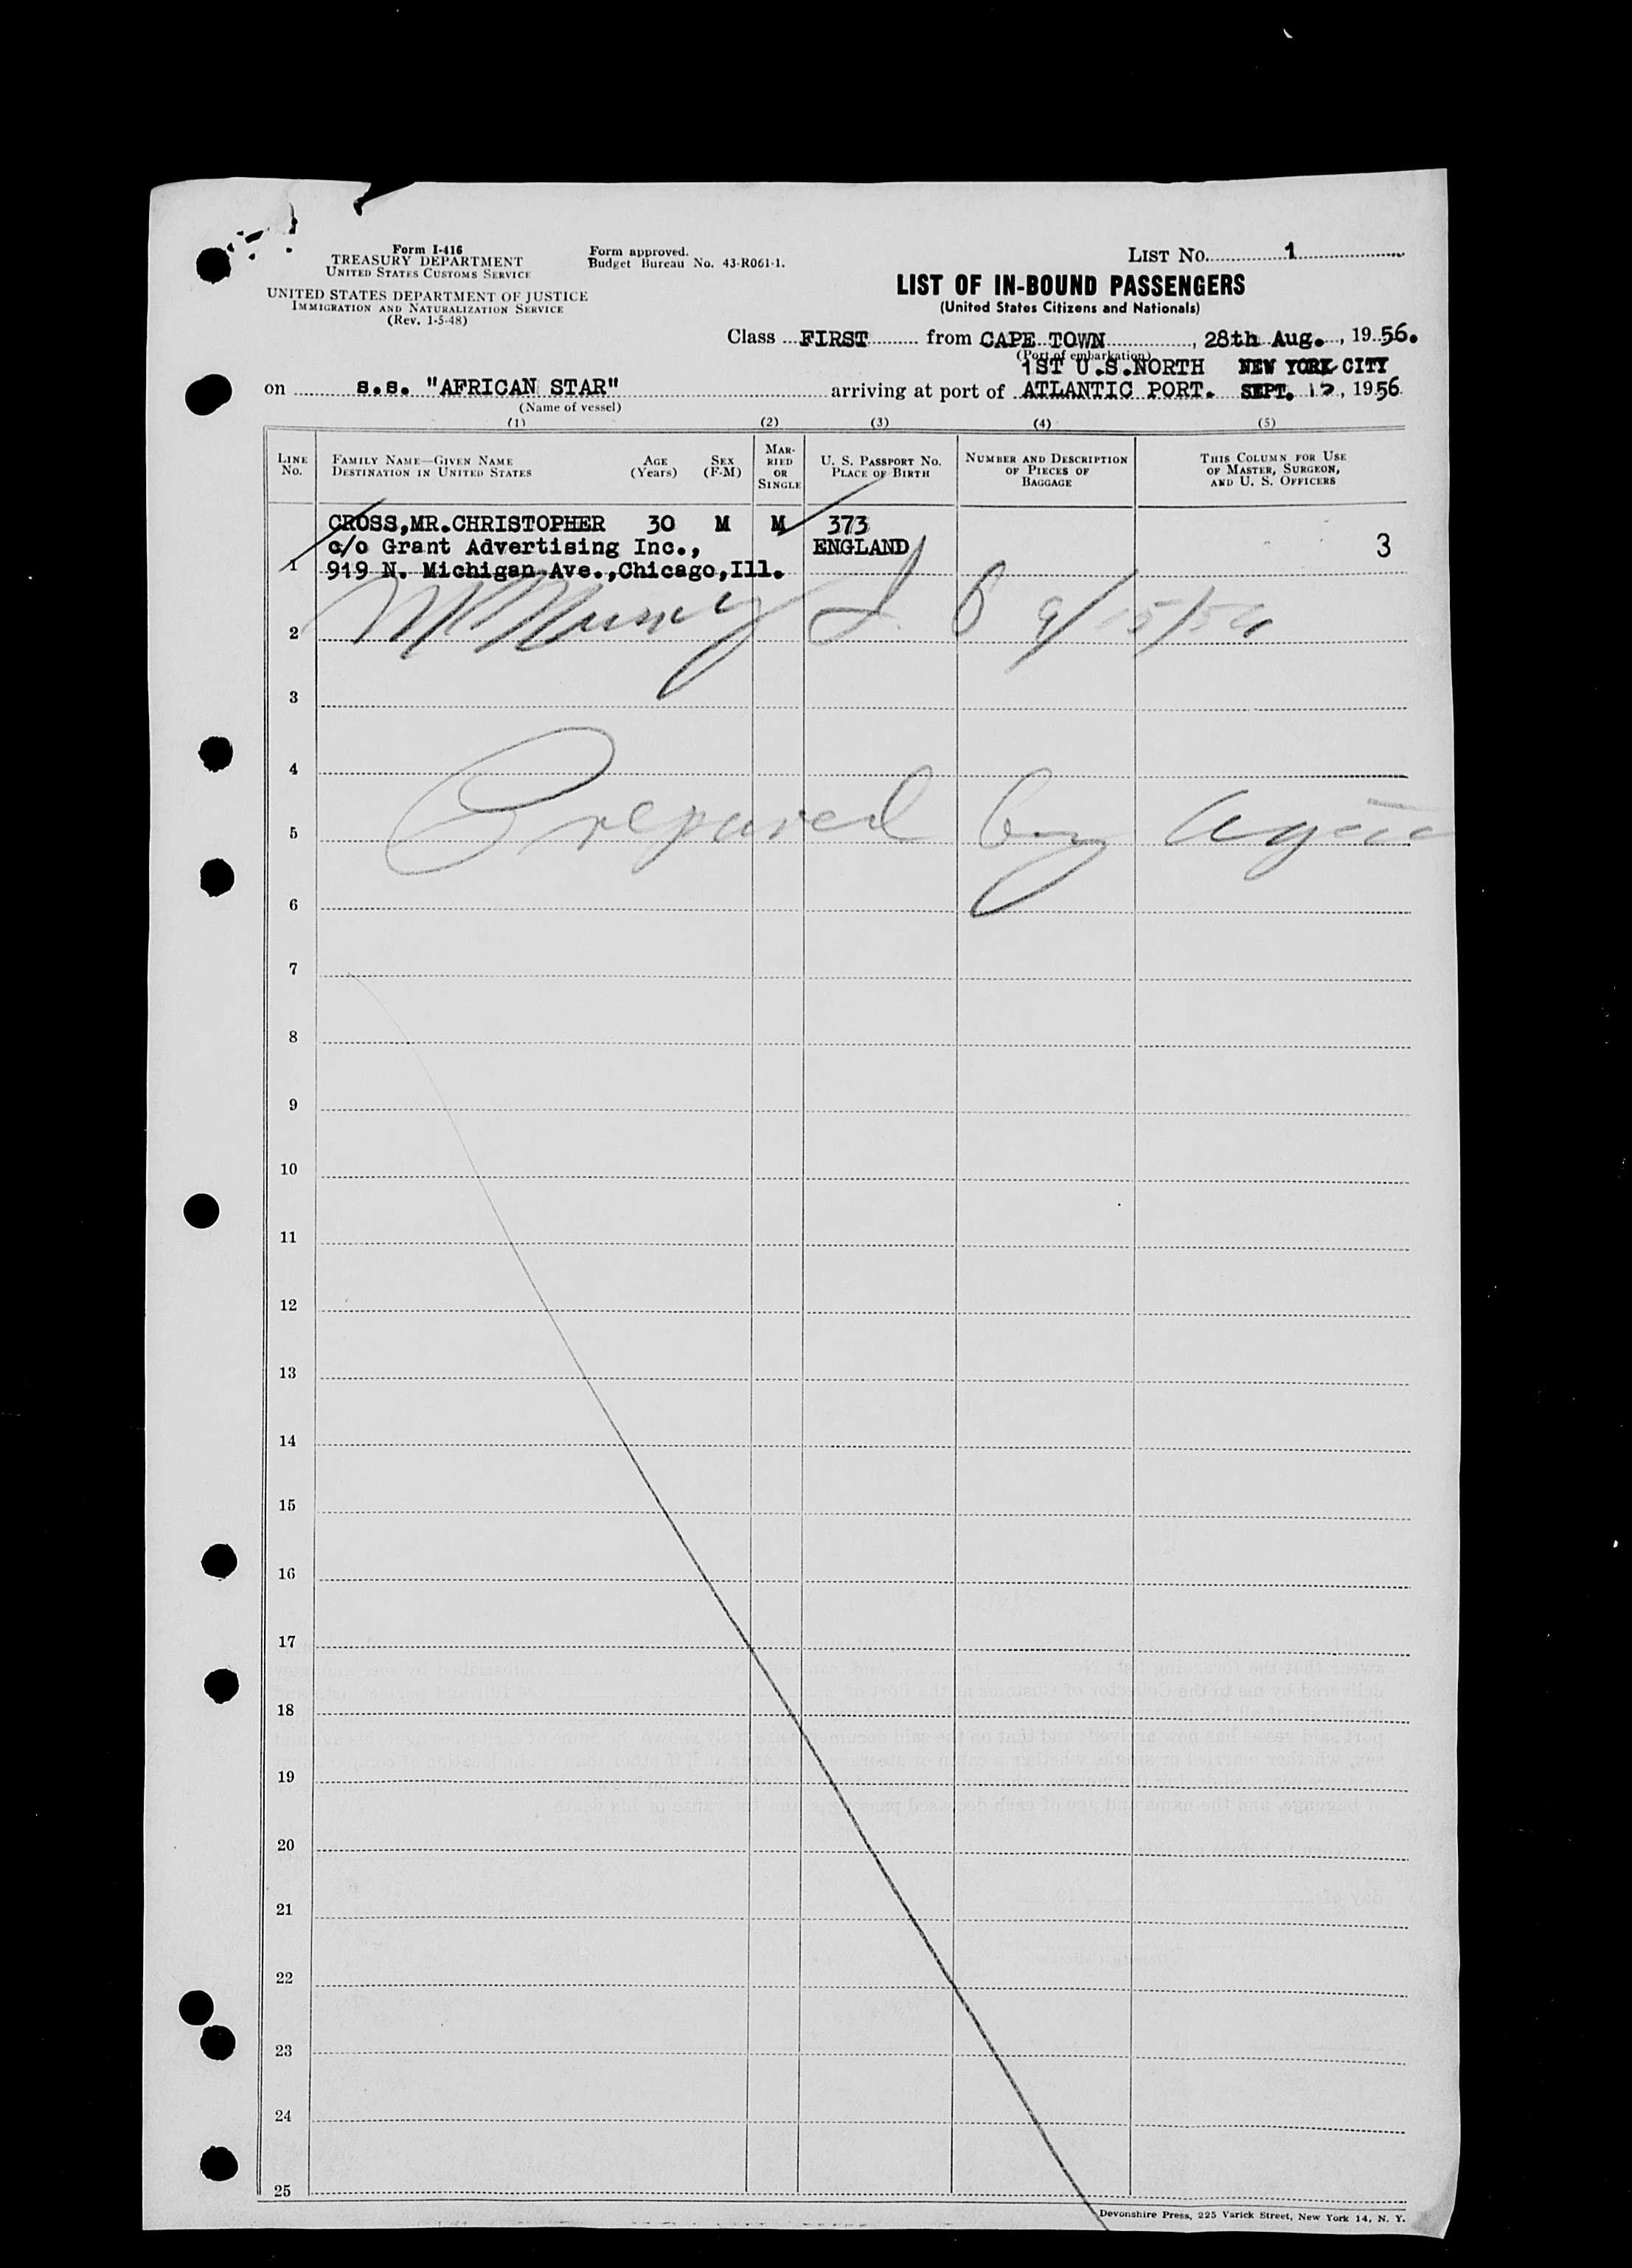 Form I-416
TREASURY DEPARTMENT
UNITED STATES CUSTOMS SERVICE
UNITED STATES DEPARTMENT OF JUSTICE
IMMIGRATION AND NATURALIZATION SERVICE
(Rev. 1-5-48)
Form approved.
Budget Bureau No. 43-R061-1.
LIST NO. 1
LIST OF IN-BOUND PASSENGERS
(United States Citizens and Nationals)
Class FIRST from CAPE TOWN, 28th Aug., 1956.
(Port of embarkation)
1ST U.S.NORTH NEW YORK CITY
on s.s. "AFRICAN STAR" arriving at port of ATLANTIC PORT. SEPT. , 1956
(Name of vessel)
(1) (2) (3) (4) (5)
LINE NO.
FAMILY NAME—GIVEN NAME
DESTINATION IN UNITED STATES
AGE (Years)
SEX (F-M)
MARRIED OR SINGLE
U. S. PASSPORT NO.
PLACE OF BIRTH
NUMBER AND DESCRIPTION OF PIECES OF BAGGAGE
THIS COLUMN FOR USE OF MASTER, SURGEON, AND U. S. OFFICERS
CROSS,MR.CHRISTOPHER 30 M M 373
c/o Grant Advertising Inc., ENGLAND 3
1 919 N. Michigan Ave.,Chicago,Ill.
2 9/15/56
3
4
5 Prepared by
6
7
8
9
10
11
12
13
14
15
16
17
18
19
20
21
22
23
24
25
Devonshire Press, 225 Varick Street, New York 14, N. Y.